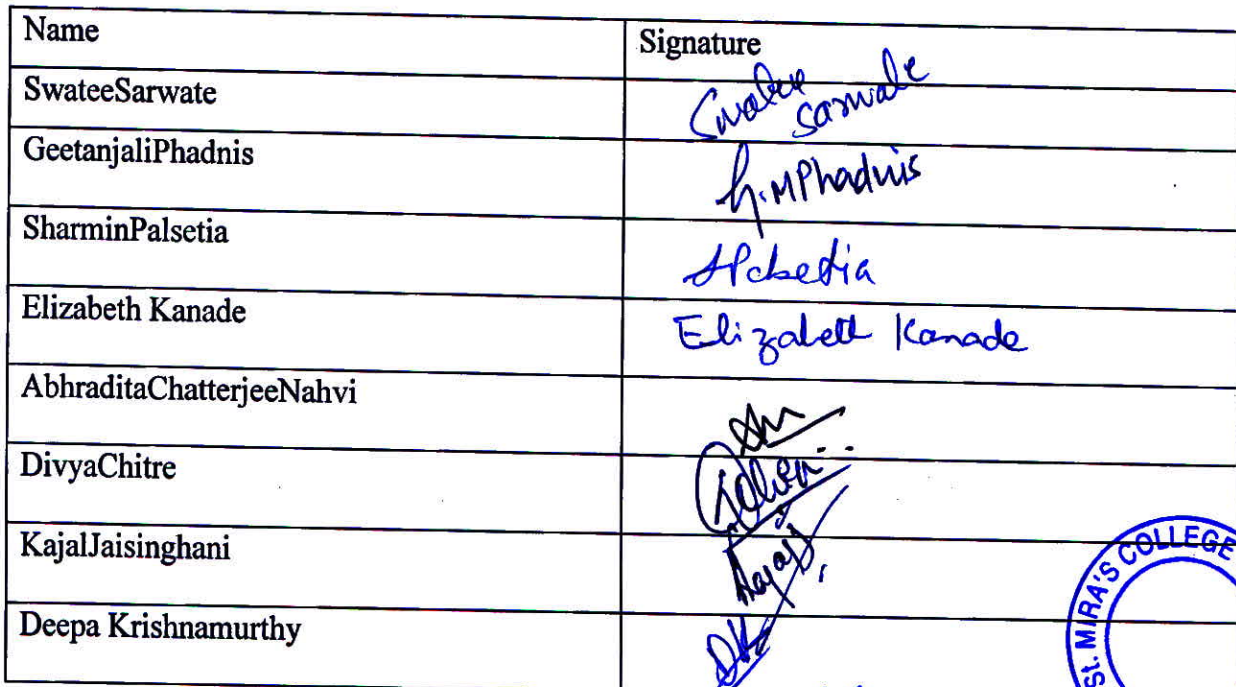 Name Signature
SwateeSarwate Swatee
Sarwate
GeetanjaliPhadnis G.MPhadnis
SharminPalsetia SPalsetia
Elizabeth Kanade Elizabeth Kanade
AbhraditaChatterjeeNahvi
DivyaChitre
KajalJaisinghani
Deepa Krishnamurthy
St. MIRA'S COLLEGE